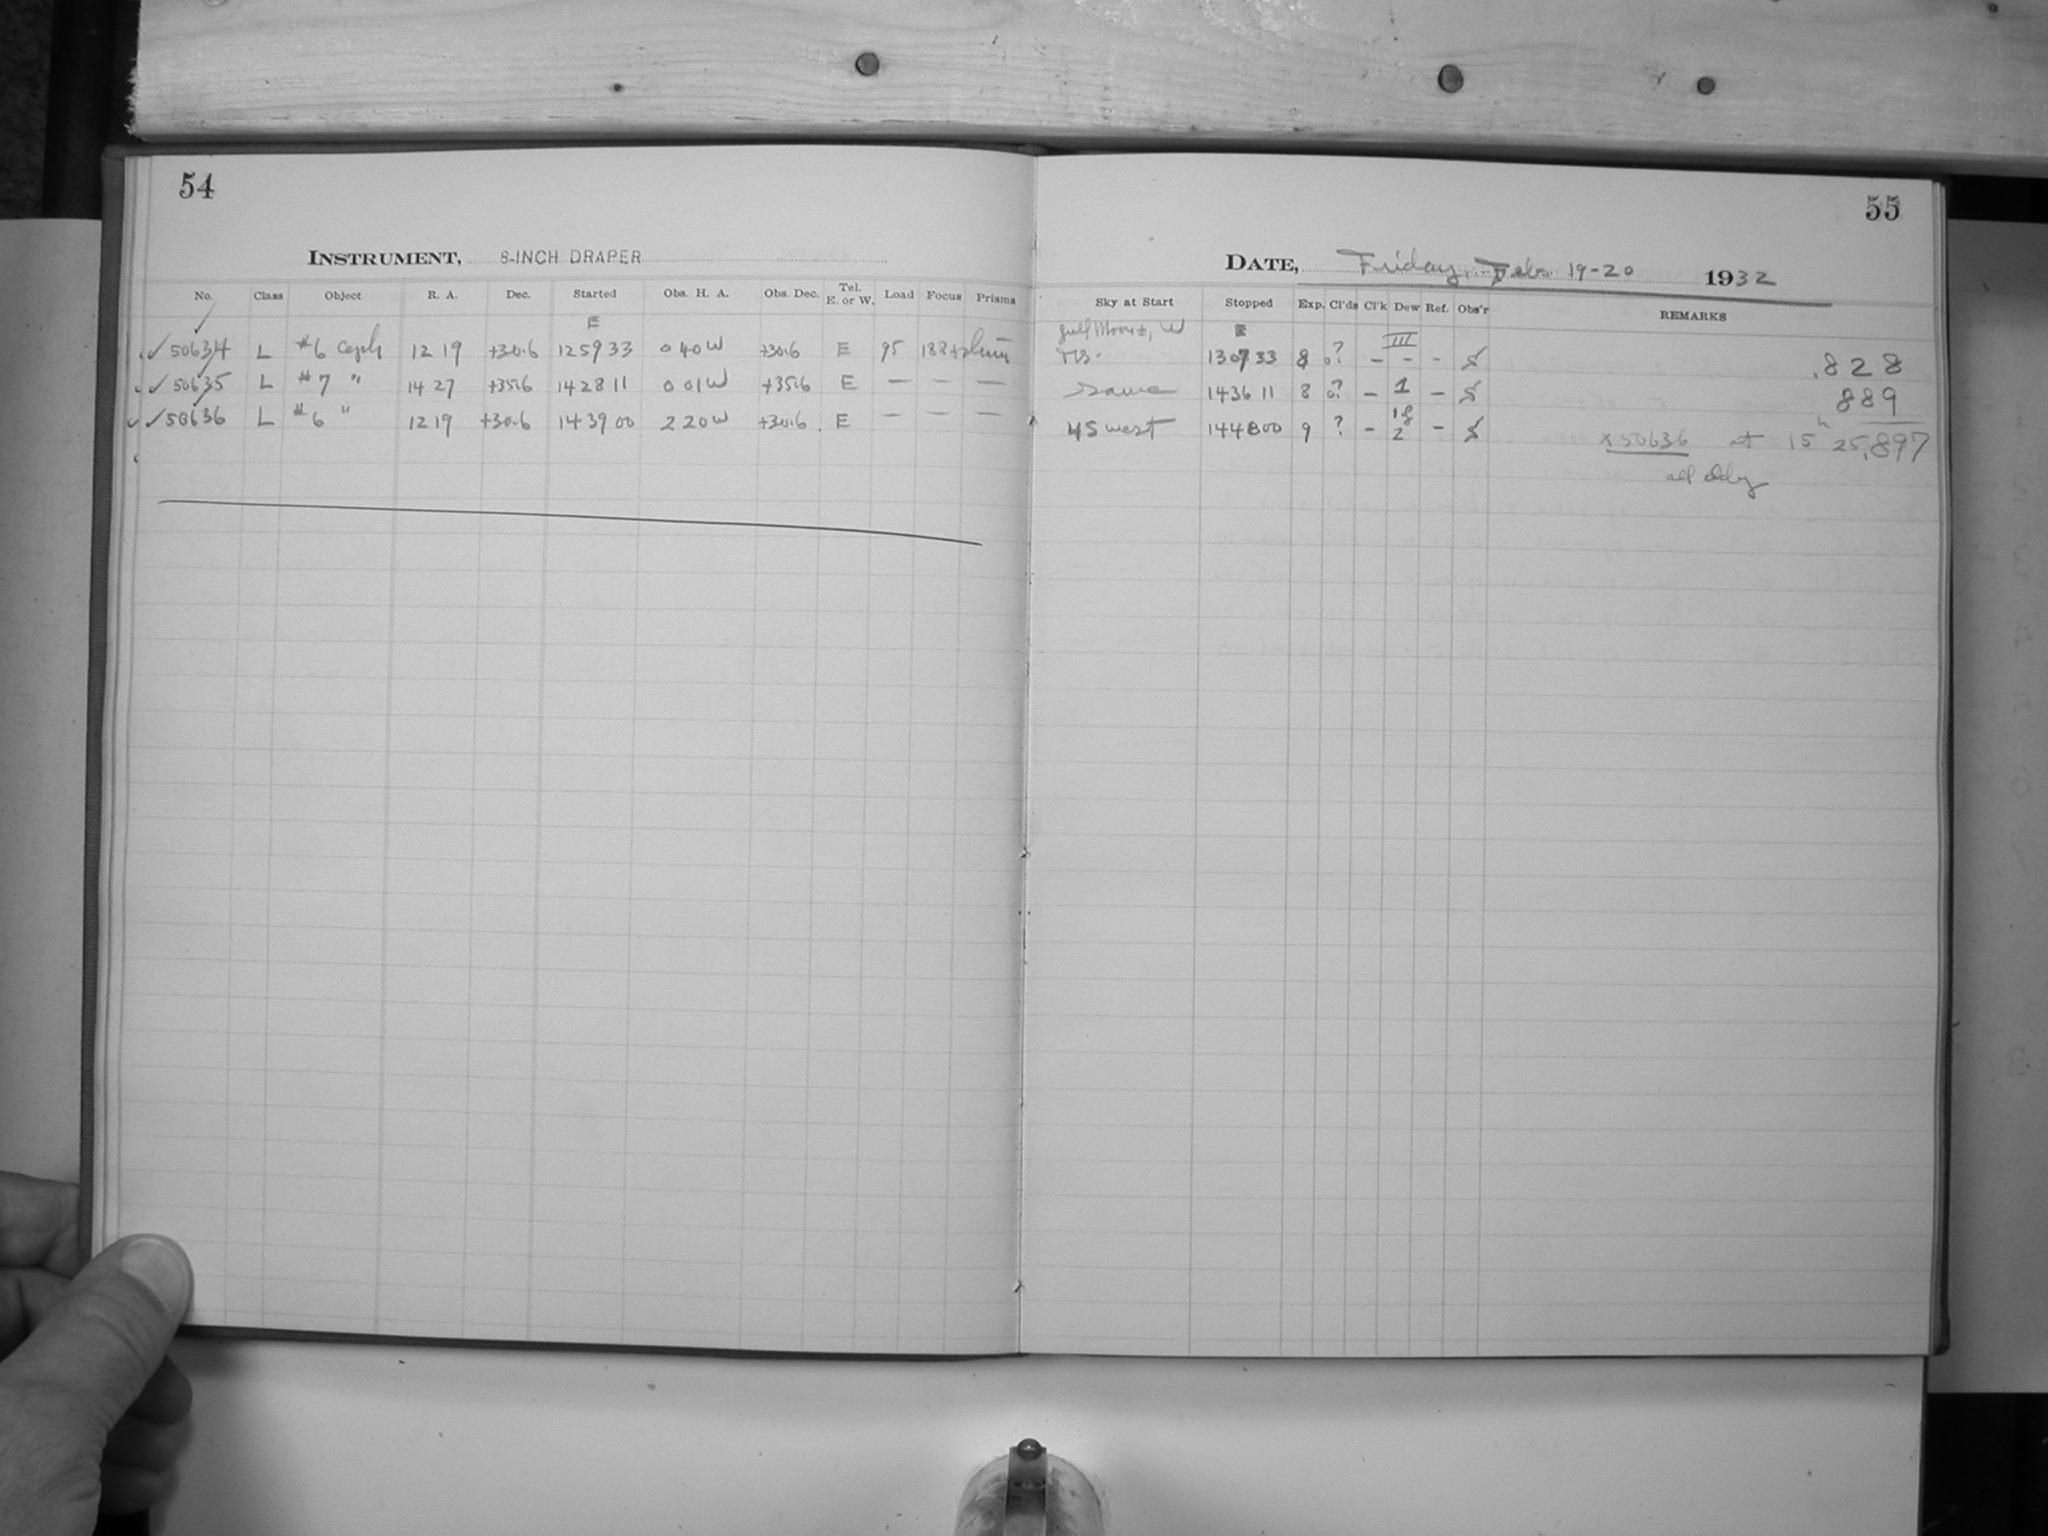 54
INSTRUMENT, 8-INCH DRAPER
No. Class Object R. A. Dec. Started Obs. H. A. Obs. Dec. Tel. E. or W. Load Focus Prisms
E
✓ 50634 L #6 Ceph 12 19 +30.6 12 59 33 0 40 W +30.6 E 95 188
✓ 50635 L #7 " 14 27 +35.6 14 28 11 0 01 W +35.6 E — — —
✓ 50636 L #6 " 12 19 +30.6 14 39 00 2 20 W +30.6 E — — —
55
DATE, Friday, Feb. 19-20 1932
Sky at Start Stopped Exp. Cl'ds Cl'k Dew Ref. Obs'r REMARKS
Full Moon ±, W E III
13 07 33 8 0? – – – .828
same 14 36 11 8 0? – 1 – 889
4S west 14 48 00 9 ? – 2 – x 50636 at 15h 25.897
all